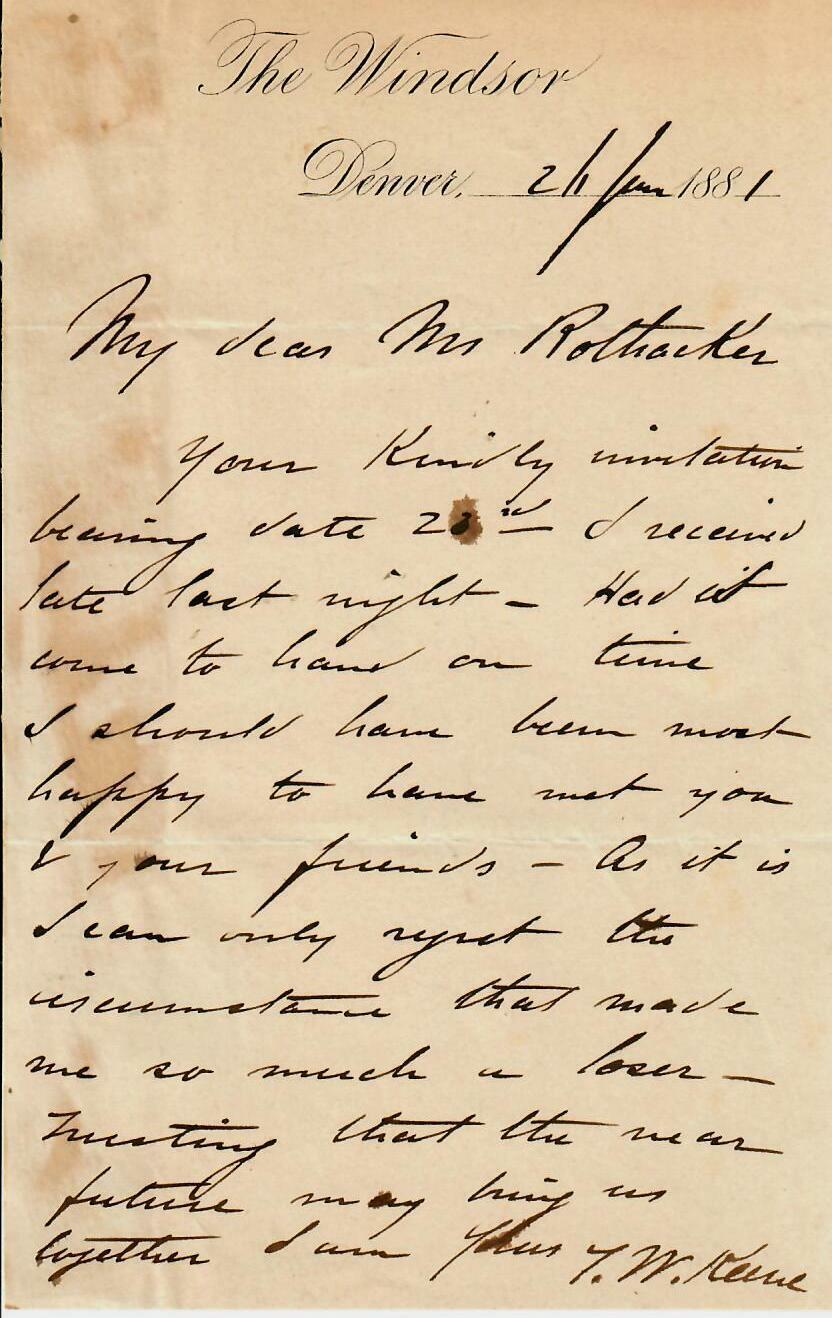 The Windsor
Denver, 26 Jan 1881
My dear Mr Rothacker
Your Kindly invitation
bearing date 23rd I received
late last night - Had it
come to hand on time
I should have been most
happy to have met you
& your friends - As it is
I can only regret the
circumstance that made
me so much a loser -
Trusting that the near
future may bring us
together I am Yours T. W. Keene